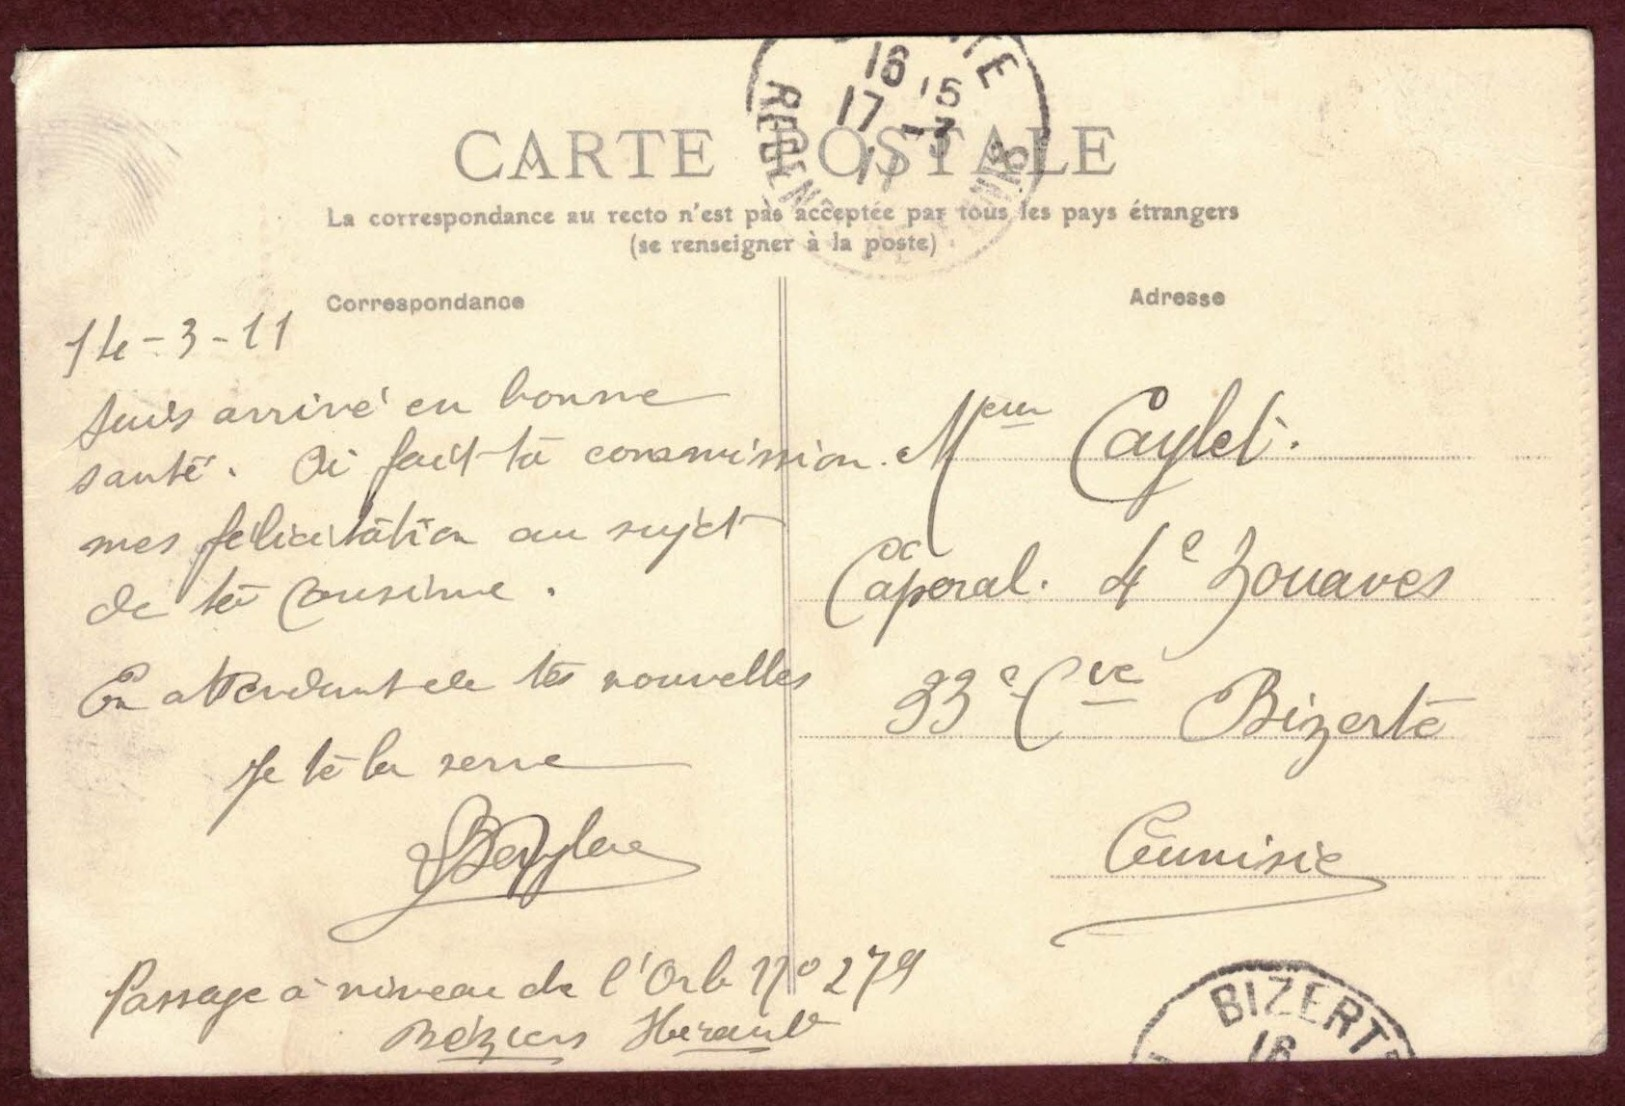 CARTE POSTALE
La correspondance au recto n'est pas acceptée par tous les pays étrangers
(se renseigner à la poste)
Correspondance
Adresse
14-3-11
Suis arrivé en bonne
santé. Ai fait ta commission.
mes félicitation au sujet
de ta Cousine.
En attendant de tes nouvelles
Je te la serre
Passage à niveau de l'Orb N° 279
Béziers Hérault
Meur Caylet.
Caporal. 4e Zouaves
33e Cie Bizerte
Tunisie
16 15
17 -3
11
BIZERTE
16